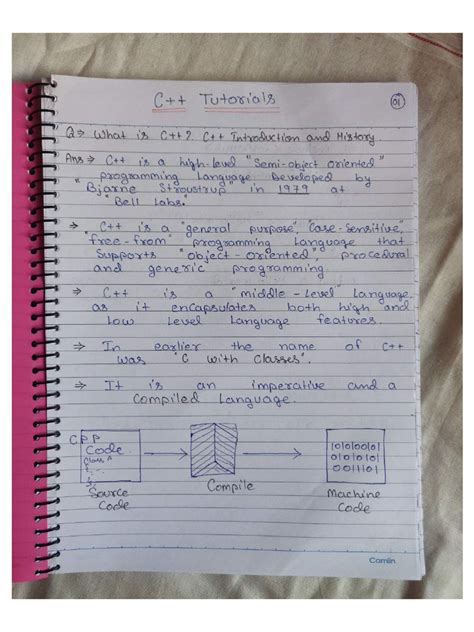 C++ Tutorials
01
Q ⇒ What is C++? C++ Introduction and History
Ans ⇒ C++ is a high-level "Semi-object oriented"
programming Language Developed by
"Bjarne Stroustrup" in 1979 at
"Bell Labs."
⇒ C++ is a "general purpose", "Case-Sensitive",
free-from" programming Language that
Supports "object-oriented", procedural
and generic programming
⇒ C++ is a "middle-level" Language
as it encapsulates both high and
Low Level Language features.
⇒ In earlier the name of C++
was "C with Classes".
⇒ It is an imperative and a
Compiled Language.
C.P.P
Code
Class A
Source
Code
Compile
10100101
0101010
001110
Machine
Code
Camlin